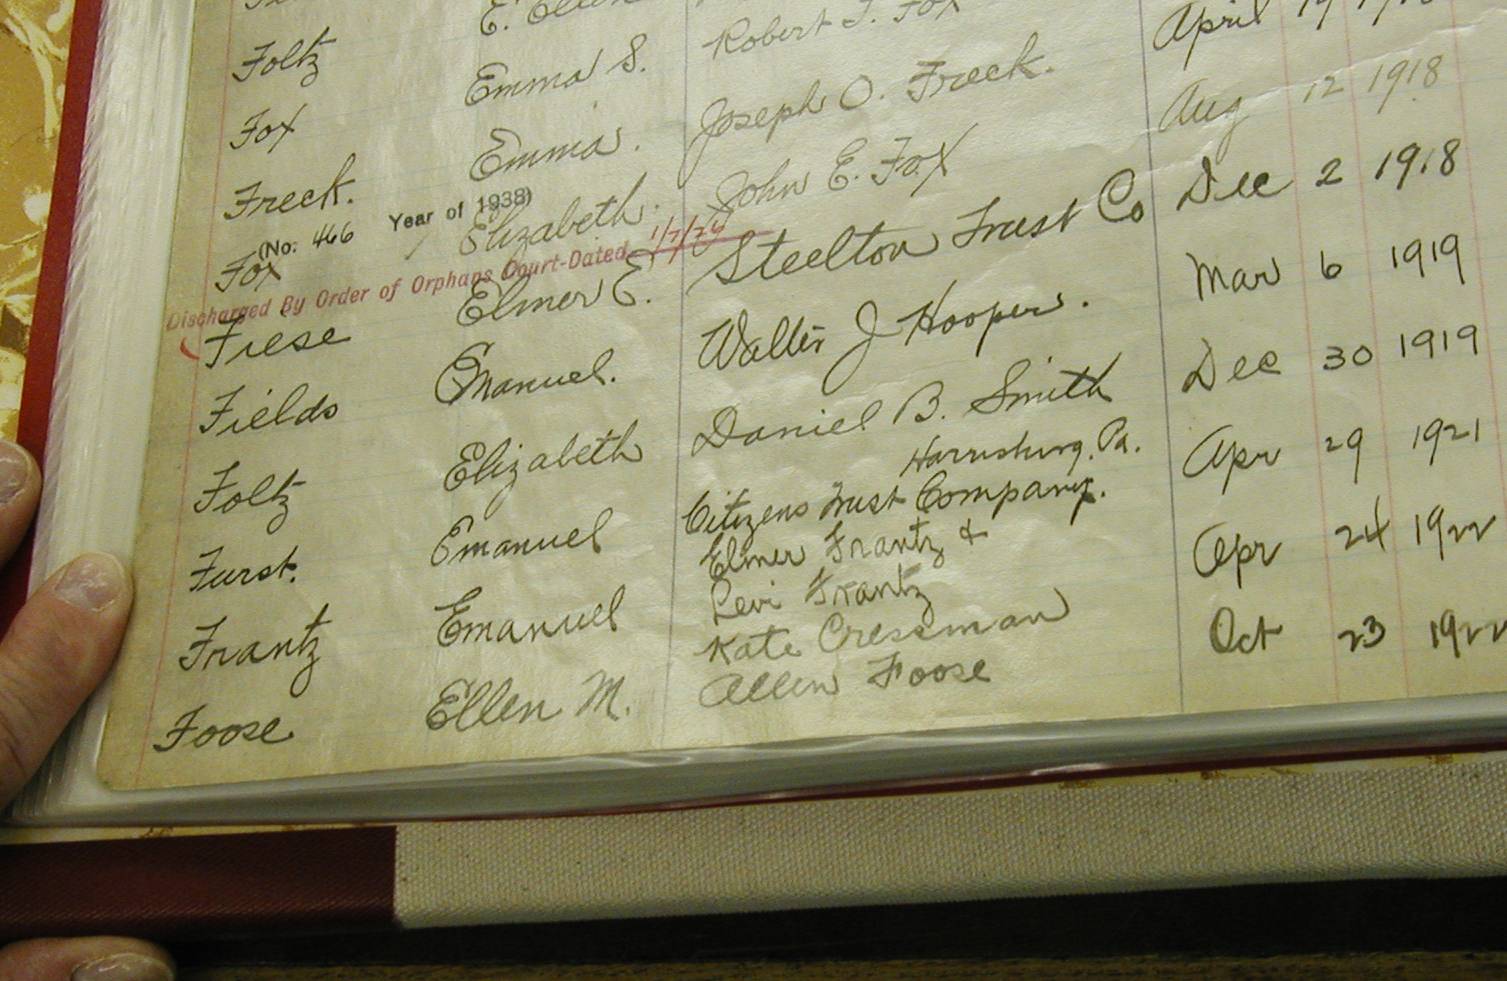 Foltz E.
Fox Emma S. Robert T. Fox
Freck. Emma. Joseph O. Freck. April
(No. 466 Year of 1938)
Fox Elizabeth. John E. Fox Aug 12 1918
Discharged By Order of Orphans Court-Dated 1/7/26
Fiese Elmer E. Steelton Trust Co Dec 2 1918
Fields Emanuel. Walter J Hooper. Mar 6 1919
Foltz Elizabeth Daniel B. Smith Dec 30 1919
Harrisburg, Pa.
Furst. Emanuel Citizens Trust Company. Apr 29 1921
Frantz Emanuel Elmer Frantz & Apr 24 1922
Levi Frantz
Foose Ellen M. Kate Cressman Oct 23 1922
Allen Foose